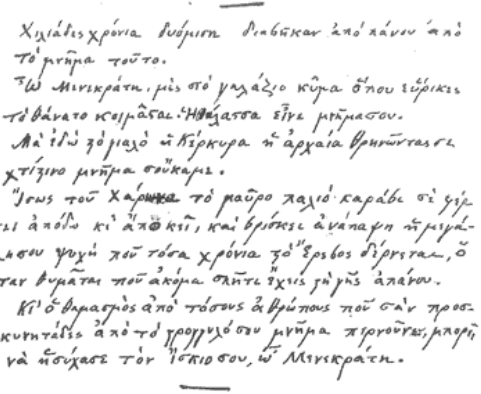 Χιλιάδες χρόνια δυόμιση διαβῆκαν ἀπὸ πάνου ἀπὸ
τὸ μνῆμα τοῦτο.
Ὦ Μενεκράτη, μὲς στὸ γαλάζιο κῦμα ὅπου εὕρικες
τὸ θάνατο κοιμᾶσαι. Ἡ θάλασσα εἶνε μνῆμα σου.
Μὰ ἐδῶ ξὸ γιαλὸ ἡ Κέρκυρα ἡ ἀρχαία θρηνῶντας σε
χτίζινο μνῆμα σοὔκαμε.
Ἴσως τοῦ Χάρωνα τὸ μαῦρο παλιὸ καράβι σὲ φέρ-
νει ἀπόδω κι' ἀπὸ κεῖ, καὶ βρίσκει ἀνάπαψη ἡ μεγά-
λη σου ψυχὴ ποῦ τόσα χρόνια ξὸ Ἔρεβος δέρνεται, ὅ
ταν θυμᾶται ποῦ ἀκόμα σπῆτι ἔχεις ξὴ γῆς ἀπάνου.
Κι' ὁ θαμασμὸς ἀπὸ τόσους ἀθρώπους ποῦ σὰν προσ-
κυνητάδες ἀπὸ τὸ στρογγυλό σου μνῆμα περνοῦνε, μπορεῖ
νὰ ἡσύχασε τὸν ἴσκιο σου, ὦ Μενεκράτη.